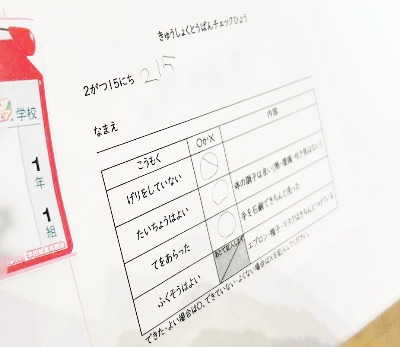 きゅうしょくとうばんチェックひょう
2がつ15にち 215
なまえ
こうもく OかX 内容
げりをしていない
たいちょうはよい 体の調子は良い(熱・腹痛・吐き気はない)
てをあらった 手を石鹸できちんと洗った
ふくそうはよい エプロン・帽子・マスクはきちんとつけている
できた・よい場合はO、できていない・よくない場合はXを記入してください。
学校
1
年
1
組